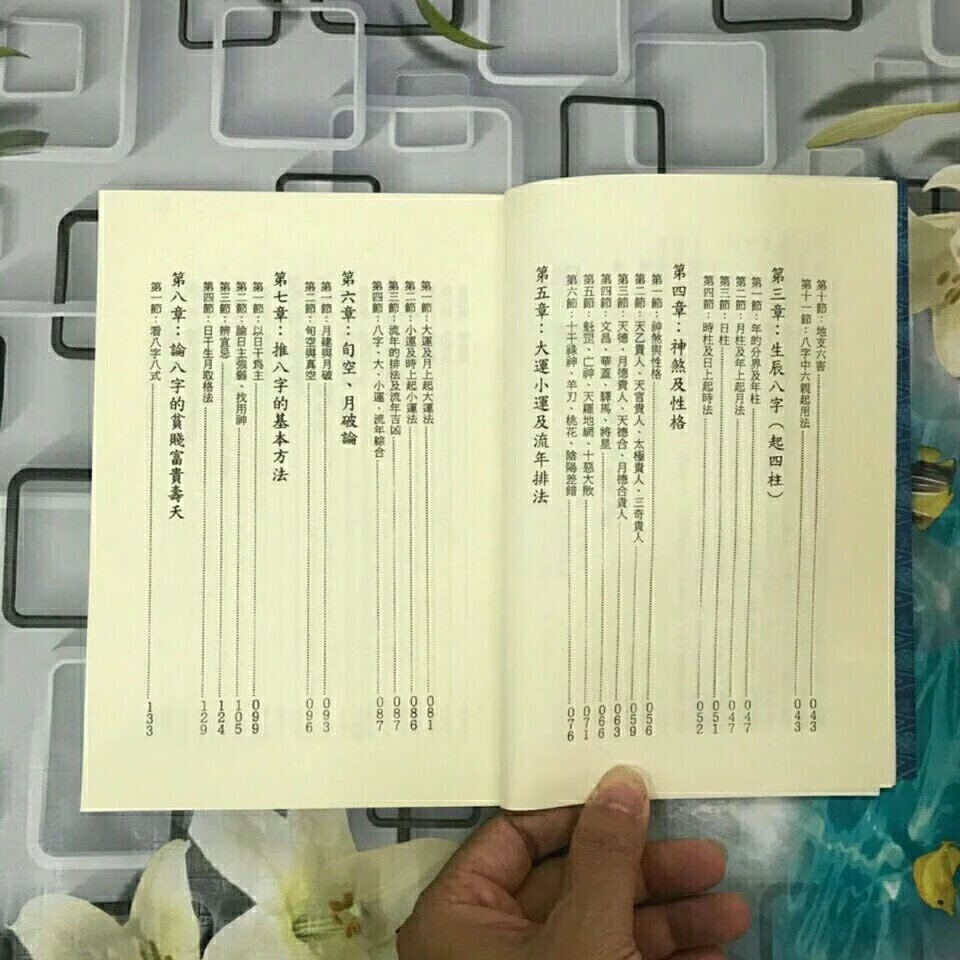 第十節：地支六害 043
第十一節：八字中六親起用法 043
第三章：生辰八字（起四柱）
第一節：年的分界及年柱 047
第二節：月柱及年上起月法 047
第三節：日柱 051
第四節：時柱及日上起時法 052
第四章：神煞及性格
第一節：神煞與性格 056
第二節：天乙貴人、天官貴人、太極貴人、三奇貴人 059
第三節：天德、月德貴人、天德合、月德合貴人 063
第四節：文昌、華蓋、驛馬、將星 066
第五節：魁罡、亡神、天羅地網、十惡大敗 071
第六節：十干祿神、羊刃、桃花、陰陽差錯 076
第五章：大運小運及流年排法
第一節：大運及月上起大運法 081
第二節：小運及時上起小運法 086
第三節：流年的排法及流年吉凶 087
第四節：八字、大、小運、流年綜合 087
第六章：旬空、月破論
第一節：月建與月破 093
第二節：旬空與真空 096
第七章：推八字的基本方法
第一節：以日干為主 099
第二節：論日主強弱、找用神 105
第三節：辨宜忌 124
第四節：日干生月取格法 129
第八章：論八字的貧賤富貴壽夭
第一節：看八字八式 133